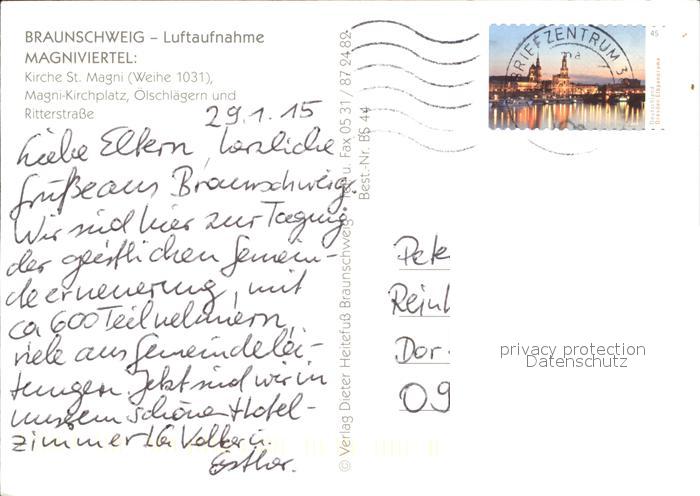 BRAUNSCHWEIG – Luftaufnahme
MAGNIVIERTEL:
Kirche St. Magni (Weihe 1031),
Magni-Kirchplatz, Ölschlägern und
Ritterstraße
29.1.15
Liebe Eltern, herzliche
Grüße aus Braunschweig.
Wir sind hier zur Tagung
der geistlichen Gemein-
deerneuerung, mit
ca 600 Teilnehmern,
viele aus Gemeindelei-
tungen. Jetzt sind wir in
unserem schönen Hotel-
zimmer. LG Volker u.
Esther.
© Verlag Dieter Heitefuß Braunschweig Tel. u. Fax 05 31 / 87 24 82
Best.-Nr. BS 44
BRIEFZENTRUM 3
45
Deutschland
Pete
Reinl
Dor
09
privacy protection
Datenschutz